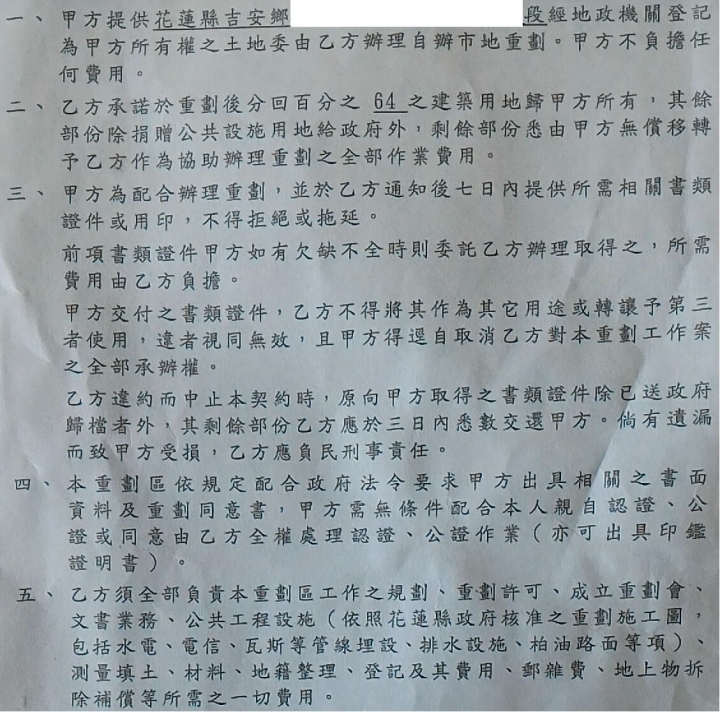 一、甲方提供花蓮縣吉安鄉 段經地政機關登記
為甲方所有權之土地委由乙方辦理自辦市地重劃。甲方不負擔任
何費用。
二、乙方承諾於重劃後分回百分之 64 之建築用地歸甲方所有，其餘
部份除捐贈公共設施用地給政府外，剩餘部份悉由甲方無償移轉
予乙方作為協助辦理重劃之全部作業費用。
三、甲方為配合辦理重劃，並於乙方通知後七日內提供所需相關書類
證件或用印，不得拒絕或拖延。
前項書類證件甲方如有欠缺不全時則委託乙方辦理取得之，所需
費用由乙方負擔。
甲方交付之書類證件，乙方不得將其作為其它用途或轉讓予第三
者使用，違者視同無效，且甲方得逕自取消乙方對本重劃工作案
之全部承辦權。
乙方違約而中止本契約時，原向甲方取得之書類證件除已送政府
歸檔者外，其剩餘部份乙方應於三日內悉數交還甲方。倘有遺漏
而致甲方受損，乙方應負民刑事責任。
四、本重劃區依規定配合政府法令要求甲方出具相關之書面
資料及重劃同意書，甲方需無條件配合本人親自認證、公
證或同意由乙方全權處理認證、公證作業（亦可出具印鑑
證明書）。
五、乙方須全部負責本重劃區工作之規劃、重劃許可、成立重劃會、
文書業務、公共工程設施（依照花蓮縣政府核准之重劃施工圖，
包括水電、電信、瓦斯等管線埋設、排水設施、柏油路面等項）、
測量填土、材料、地籍整理、登記及其費用、郵雜費、地上物拆
除補償等所需之一切費用。